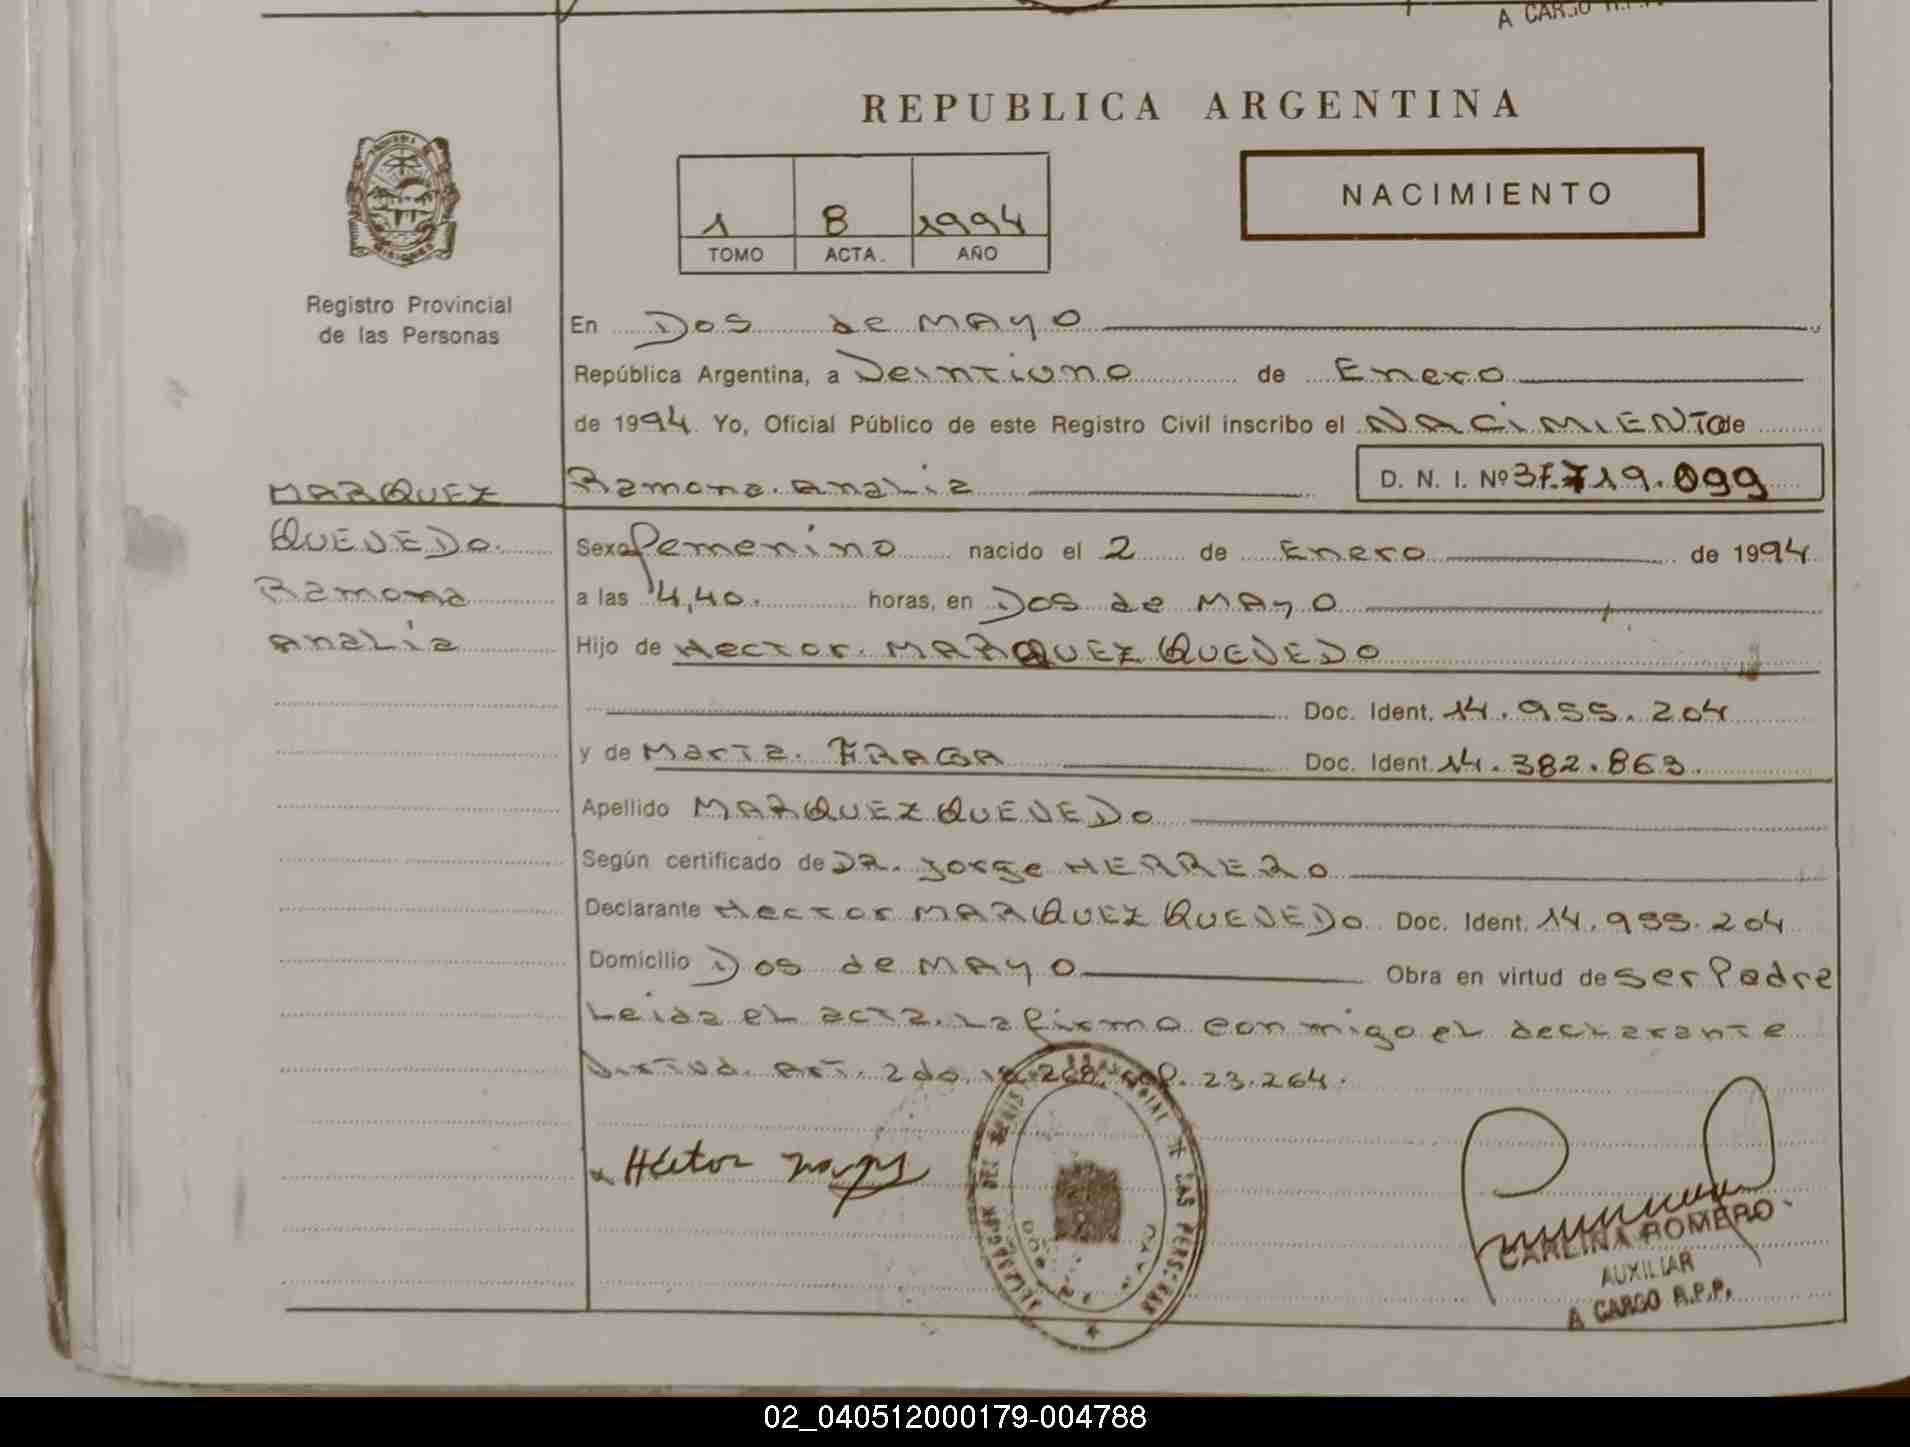 A CARGO R.P.P.
REPUBLICA ARGENTINA
NACIMIENTO
1 8 1994
TOMO ACTA. AÑO
Registro Provincial
de las Personas
En Dos de MAyo
República Argentina, a Veintiuno de Enero
de 1994. Yo, Oficial Público de este Registro Civil inscribo el NACIMIENTO de
MARQUEZ Ramona Analia D. N. I. Nº 37.719.099
QUEVEDO. Sexo femenino nacido el 2 de Enero de 1994
Ramona a las 4,40. horas, en Dos de MAyo
Analia Hijo de Hector. MARQUEZ QUEVEDO
Doc. Ident. 14.955.204
y de Marta. FRAGA Doc. Ident. 14.382.863.
Apellido MARQUEZ QUEVEDO
Según certificado de DR. Jorge HERRERO
Declarante Hector MARQUEZ QUEVEDO. Doc. Ident. 14.955.204
Domicilio Dos de MAyo Obra en virtud de ser Padre
Leida el acta. La firma conmigo el declarante
Virtud. Art. 2do. 23.264.
Héctor
CARLINA ROMERO
AUXILIAR
A CARGO R.P.P.
02_040512000179-004788